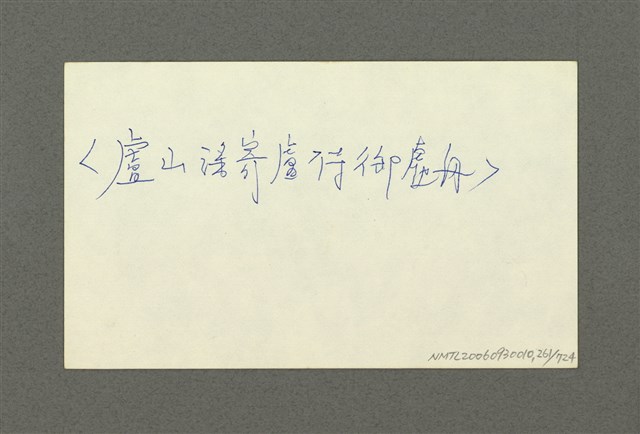 〈廬山謠寄盧侍御虛舟〉
NMTL20060930010,261/724